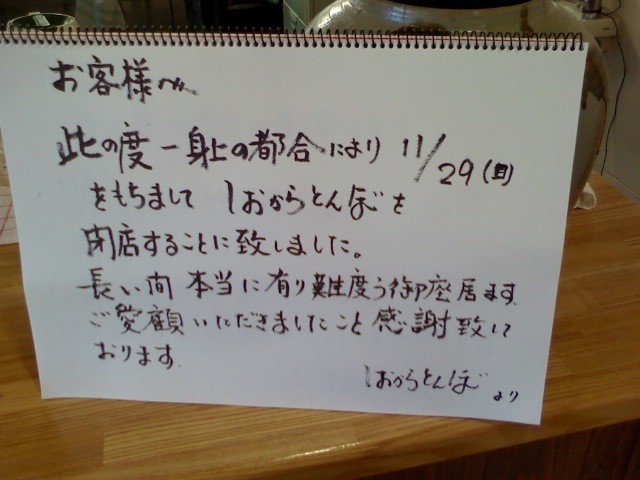 お客様へ
此の度一身上の都合により 11/29(日)
をもちまして しおからとんぼを
閉店することに致しました。
長い間 本当に有り難度う御座居ます。
ご愛顧いただきましたこと感謝致して
おります。
しおからとんぼ より